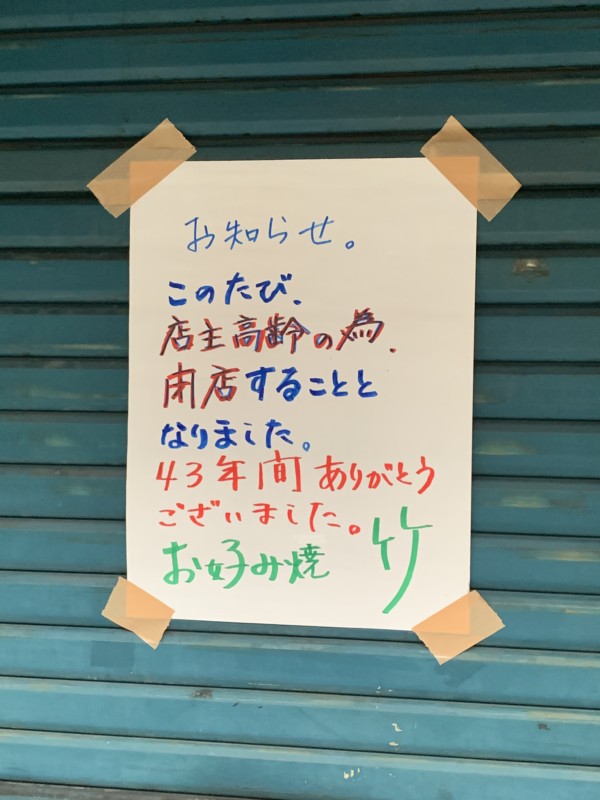 お知らせ。
このたび、
店主高齢の為、
閉店することと
なりました。
43年間ありがとう
ございました。
お好み焼 竹